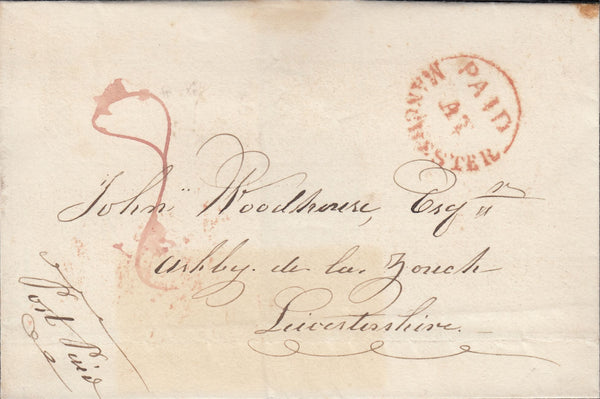 PAID
AT
MANCHESTER
John Woodhouse, Esqr
Ashby. de la. Zouch
Leicestershire.
Post Paid